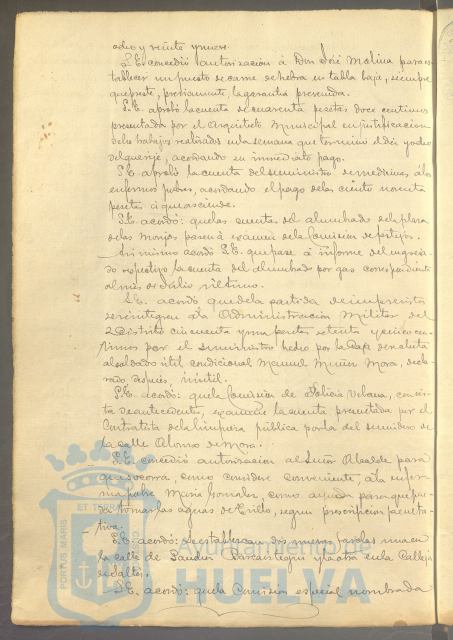 ocho y veinte y nueve.
S.E. concedió autorización á Don José Molina para es-
tablecer un puesto de carne de hebra en tabla baja, siempre
que preste, previamente, la garantía prevenida.
S.E. aprobó la cuenta de cuarenta pesetas doce centimos
presentada por el Arquitecto Municipal en justificacion
de los trabajos realizados en la semana que terminó el dia y ocho
del que rige, acordando su inmediato pago.
S.E. aprobó la cuenta del suministro de medicinas, á los
enfermos pobres, acordando el pago de las ciento noventa
pesetas á que asciende.
S.E. acordó: que las cuentas del alumbrado de la plaza
de las Monjas pasen á examen de la Comision de festejos.
Asi mismo acordó S.E. que pase á informe del negocia-
do respectivo la cuenta del alumbrado por gas correspondiente
al mes de Julio ultimo.
S.E. acordó que de la partida de imprevistos
se reintegren á la Administracion Militar del
2º Distrito cincuenta y una pesetas, setenta y cinco cen-
timos por el suministro hecho por la Caja de recluta
al soldado útil condicional Manuel Muñoz Mora, decla-
rado despues, inútil.
S.E. acordó: que la Comision de Policia Urbana, con vis-
ta de antecedentes, examine la cuenta presentada por el
Contratista de la limpieza pública por la del sumidero de
la calle Alonso de Mora.
S.E. concedió autorizacion al Señor Alcalde para
que socorra, como considere conveniente, á la enfer-
ma pobre Maria Gonzalez, como ayuda para que pue-
da tomar las aguas de Tribto, segun prescripcion faculta-
tiva.
S.E. acordó: se establezcan dos nuevos faroles uno en
la calle de Sandio y la otra en la Calleja
de Saltés.
S.E. acordó: que la Comision especial nombrada
PORTUS MARIS
ET TERRAE
Ayuntamiento de
HUELVA